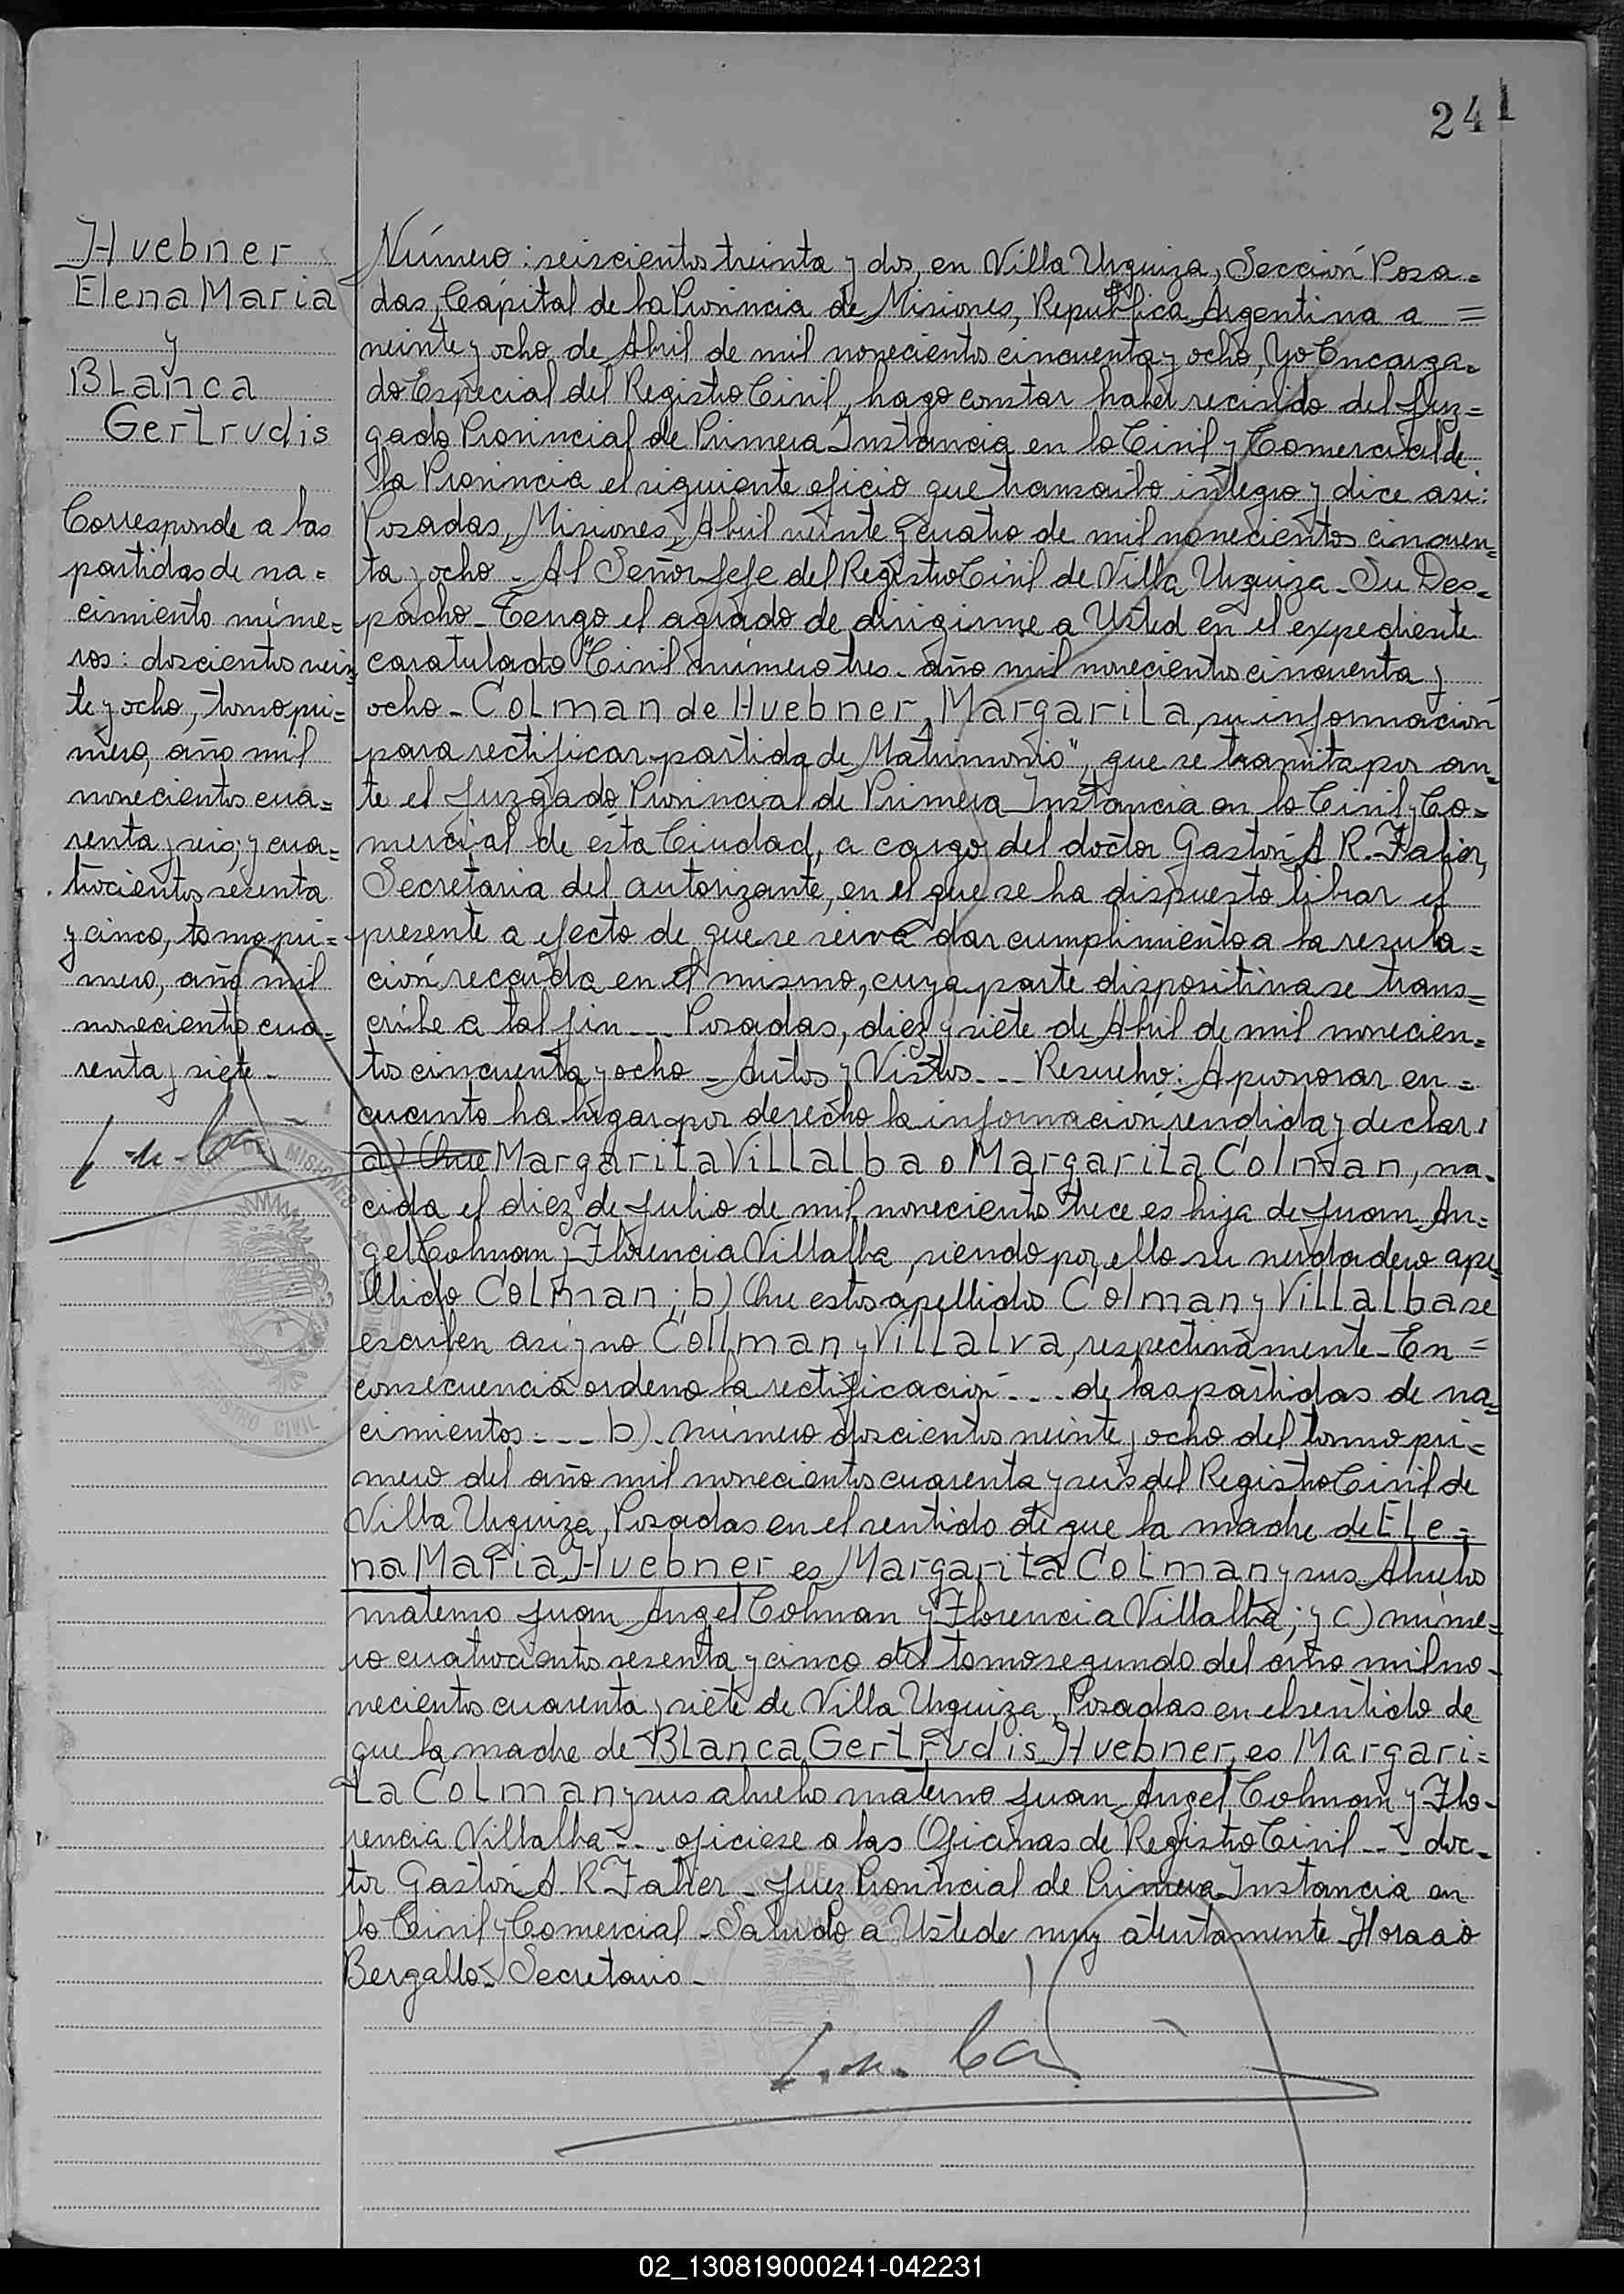 241
Huebner
Elena Maria
y
Blanca
Gertrudis
Corresponde a las
partidas de na=
cimiento núme=
ros: doscientos vein
te y ocho, tomo pri=
mero, año mil
novecientos cua=
renta y seis, y cua=
trocientos sesenta
y cinco, tomo pri=
mero, año mil
novecientos cua=
renta y siete-
Número: seiscientos treinta y dos, en Villa Urquiza, Sección Posa=
das, Cápital de la Provincia de Misiones, República Argentina a =
veinte y ocho de Abril de mil novecientos cincuenta y ocho, Yo Encarga=
do Especial del Registro Civil, hago constar haber recivido del Juz=
gado Provincial de Primera Instancia en lo Civil y Comercial de
la Provincia el siguiente oficio que transcribo integro y dice asi:
Posadas, Misiones, Abril veinte y cuatro de mil novecientos cincuen=
ta y ocho - Al Señor Jefe del Registro Civil de Villa Urquiza - Su Des=
pacho - Tengo el agrado de dirigirme a Usted en el expediente
caratulado "Civil número tres - año mil novecientos cincuenta y
ocho - Colman de Huebner, Margarita, su información
para rectificar partida de Matrimonio", que se tramita por an=
te el Juzgado Provincial de Primera Instancia en lo Civil y Co=
mercial de ésta Ciudad, a cargo del doctor Gastón A R. Falier,
Secretaria del autorizante, en el que se ha dispuesto librar el
presente a efecto de que se seirva dar cumplimiento a la resolu=
ción recaida en el mismo, cuya parte dispositiva se trans=
cribe a tal fin --- Posadas, diez y siete de Abril de mil novecien=
tos cincuenta y ocho - Autos y Vistos --- Resuelvo: Aprovar en =
cuanto ha lugar por derecho la información rendida y declar:
a) Que Margarita Villalba o Margarita Colman, na=
cida el diez de Julio de mil novecientos trece es hija de Juan An=
gel Colman y Florencia Villalba, siendo por ello su verdadero ape=
llido Colman; b) Que estos apellidos Colman y Villalba se
escriben asi y no Collman y Villalva, respectivamente - En =
consecuencia ordeno la rectificación --- de las partidas de na=
cimientos: --- b) número doscientos veinte y ocho del tomo pri=
mero del año mil novecientos cuarenta y seis del Registro Civil de
Villa Urquiza, Posadas en el sentido de que la madre de Ele=
na Maria Huebner es Margarita Colman y sus Abuelos
materno Juan Angel Colman y Florencia Villalba; y c) núme=
ro cuatrocientos sesenta y cinco del tomo segundo del año mil no-
vecientos cuarenta y siete de Villa Urquiza, Posadas en el sentido de
que la madre de Blanca Gertrudis Huebner, es Margari=
ta Colman y sus abuelos materno Juan Angel Colman y Flo-
rencia Villalba --- oficiese a las Oficinas de Registro Civil --- doc-
tor Gastón A. R. Falier - Juez Provincial de Primera Instancia en
lo Civil y Comercial - Saludo a Ustede muy atentamente - Horacio
Bergallo - Secretario -
02_130819000241-042231